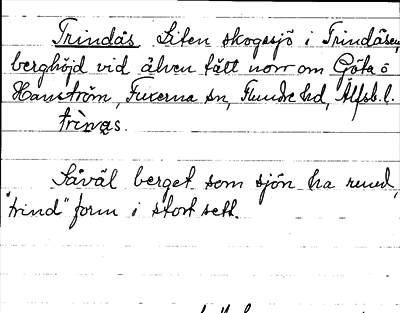 Trindås Liten skogssjö i Trindåsen,
berghöjd vid älven tätt norr om Göta o
Hanström, Fuxerna sn, Flundre hd, Älfsb. l.
trìnas.
Såväl berget som sjön ha rund,
"trind" form i stort sett.